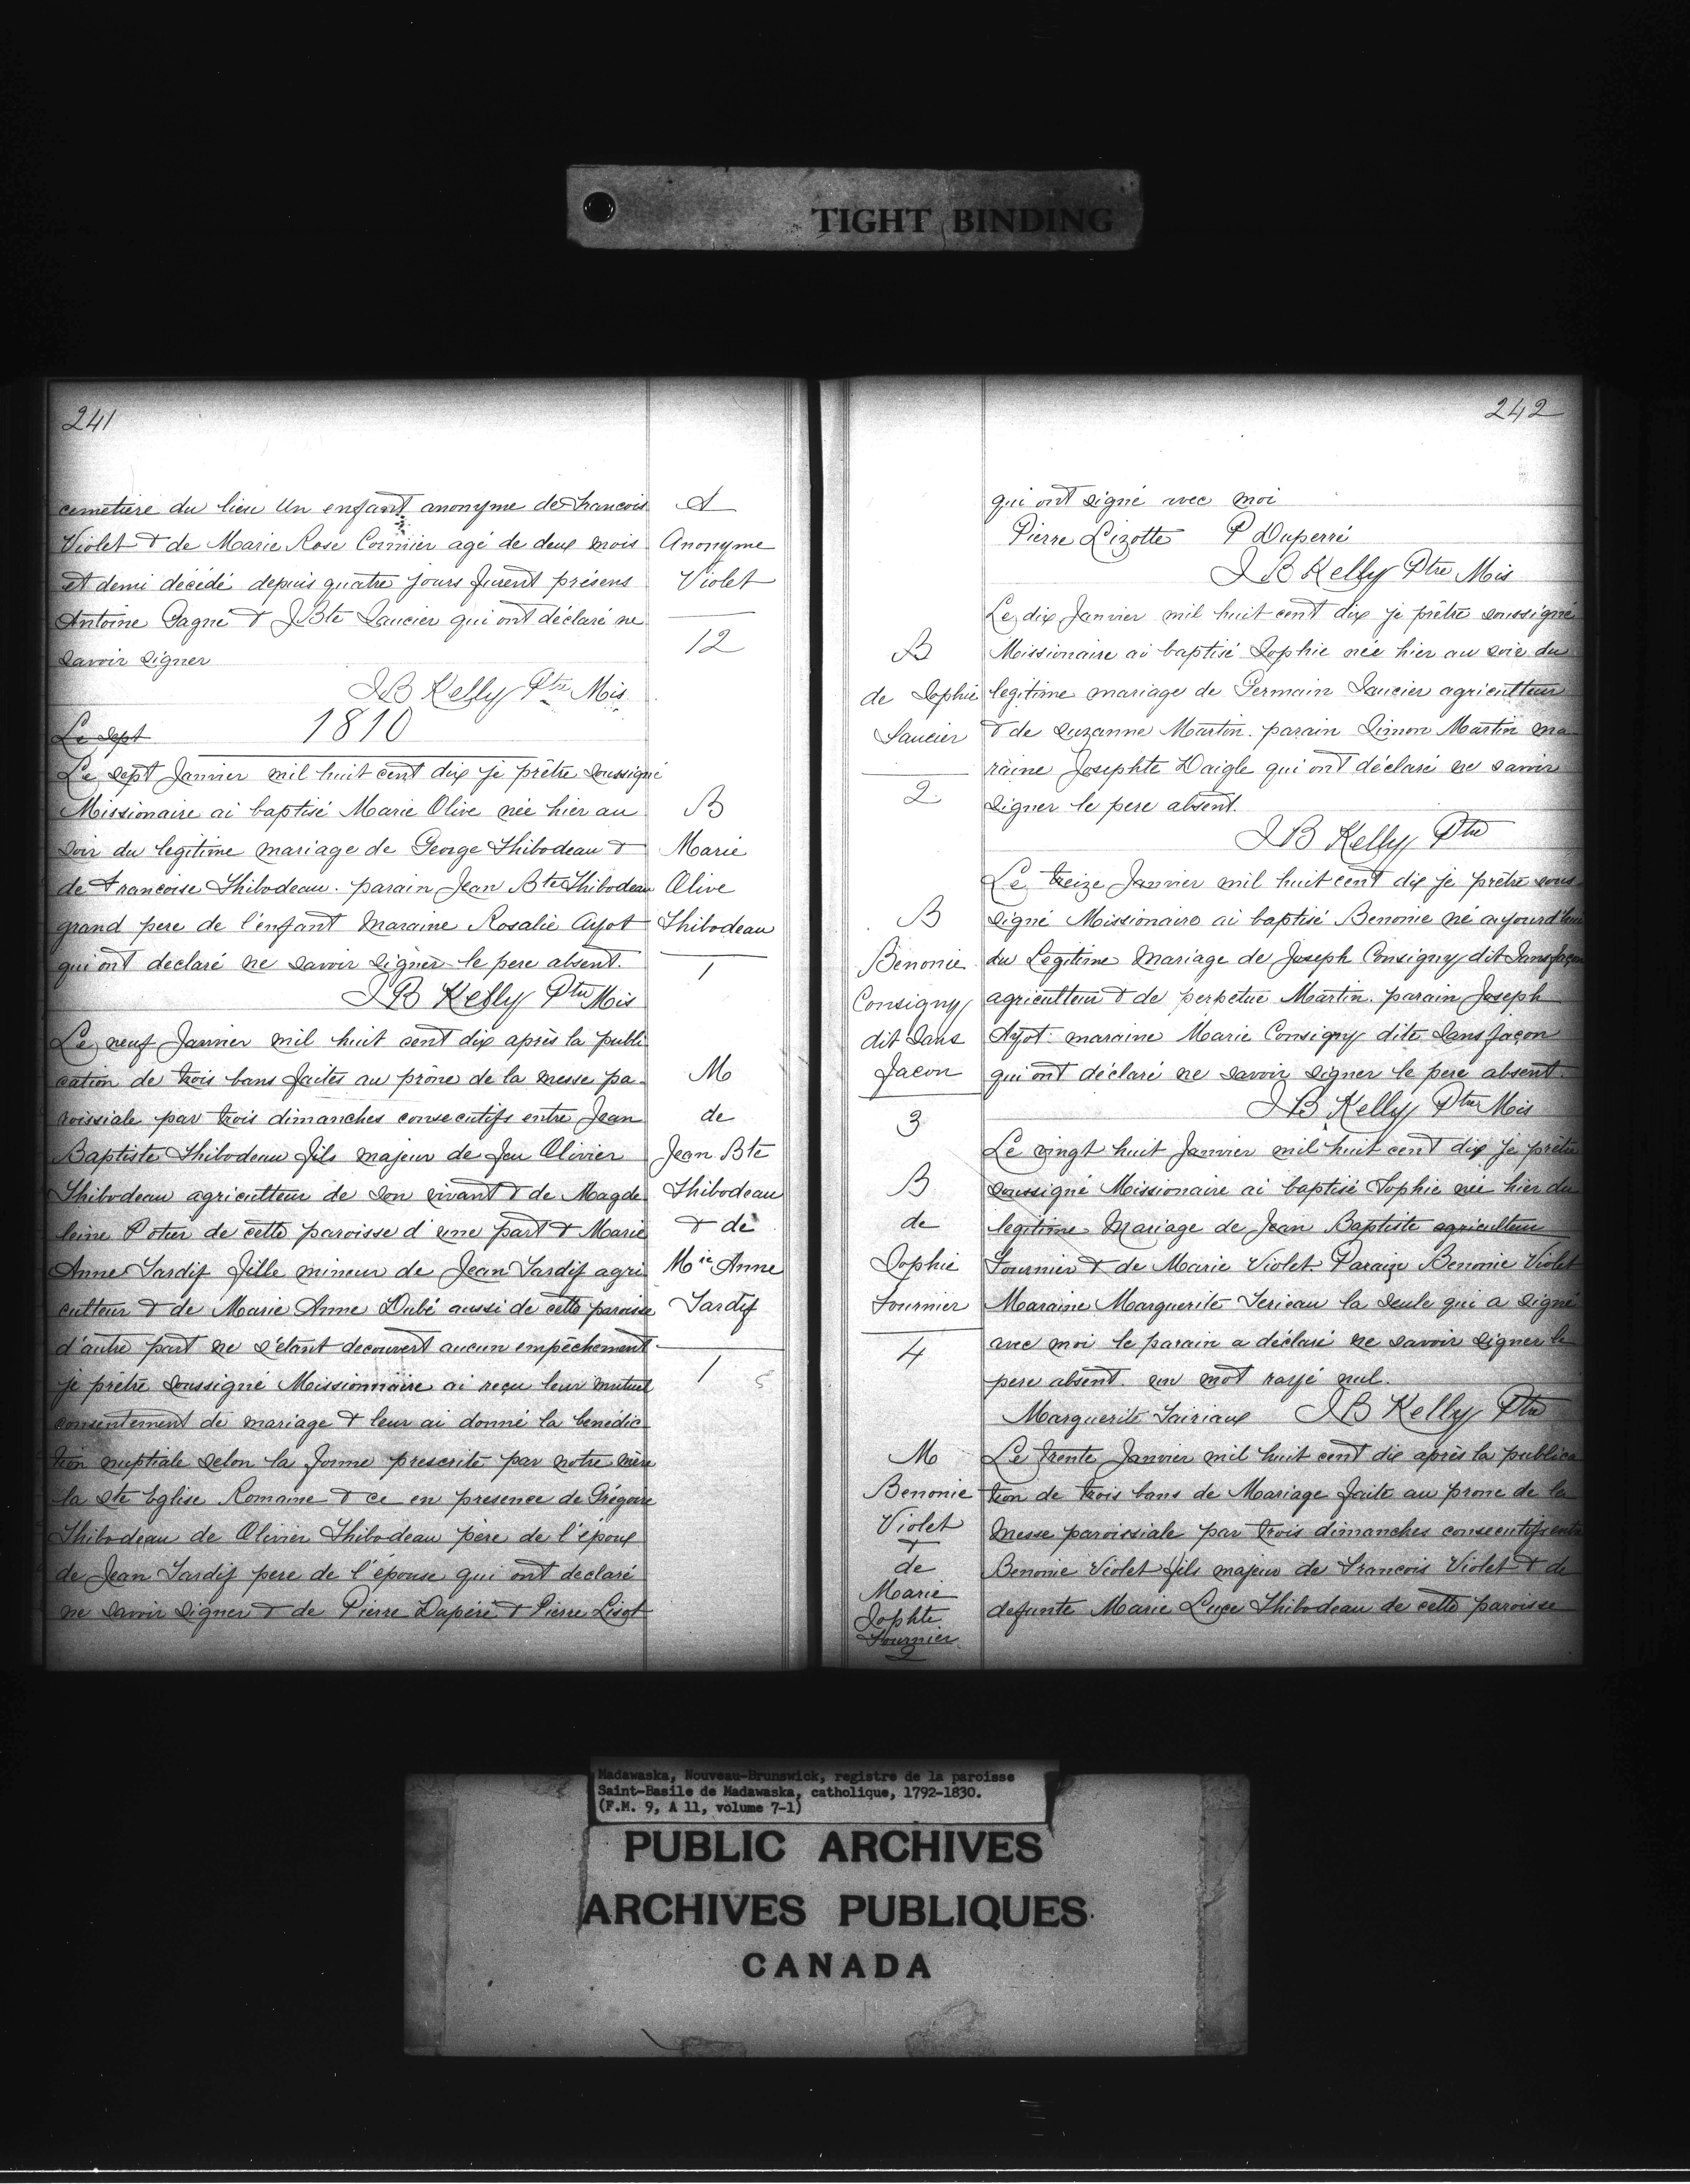 TIGHT BINDING
241
cemetiere du lieu Un enfant anonyme de Francois
Violet & de Marie Rose Cormier agé de deux mois
et demi décédé depuis quatre jours furent présens
Antoine Gagne & J Bte Saucier qui ont déclaré ne
savoir signer
J B Kelly Ptre Mis
Le sept
1810
Le sept Janvier mil huit cent dix je prêtre soussigné
Missionaire ai baptisé Marie Olive née hier au
soir du legitime mariage de George Thibodeau &
de Francoise Thibodeau. parain Jean Bte Thibodeau
grand pere de l'enfant maraine Rosalie Ayot
qui ont declaré ne savoir signer le pere absent.
J B Kelly Ptre Mis
Le neuf Janvier mil huit cent dix après la publi
cation de trois bans faites au prône de la messe pa-
roissiale par trois dimanches consecutifs entre Jean
Baptiste Thibodeau fils majeur de feu Olivier
Thibodeau agriculteur de son vivant & de Magde
leine Potier de cette paroisse d'une part & Marie
Anne Tardif fille mineur de Jean Tardif agri
culteur & de Marie Anne Dubé aussi de cette paroisse
d'autre part ne s'étant decouvert aucun empêchement
je prêtre soussigné Missionnaire ai reçu leur mutuel
consentement de mariage & leur ai donné la benédic
tion nuptiale selon la forme prescrite par notre mère
la Ste Eglise Romaine & ce en presence de Grégoire
Thibodeau de Olivier Thibodeau père de l'époux
de Jean Tardif pere de l'épouse qui ont declaré
ne savoir signer & de Pierre Dupéré & Pierre Lisot
Anonyme
Violet
12
B
Marie
Olive
Thibodeau
1
M
de
Jean Bte
Thibodeau
& de
Mie Anne
Tardif
1
242
qui ont signé avec moi
Pierre Lizotte P Duperré
J B Kelly Ptre Mis
Le dix Janvier mil huit cent dix je prêtre soussigné
Missionaire ai baptisé Sophie née hier au soir du
legitime mariage de Germain Saucier agriculteur
& de Suzanne Martin. parain Simon Martin ma-
raine Josephte Daigle qui ont déclaré ne savoir
signer le pere absent.
J B Kelly Ptre
Le treize Janvier mil huit cent dix je prêtre sous
signé Missionaire ai baptisé Benonie né aujourd'hui
du Legitime Mariage de Joseph Consigny dit Sansfaçon
agriculteur & de perpetue Martin. parain Joseph
Ayot. maraine Marie Consigny dite Sansfaçon
qui ont déclaré ne savoir signer le pere absent.
J B Kelly Ptre Mis
Le vingt huit Janvier mil huit cent dix je prêtre
soussigné Missionaire ai baptisé Sophie née hier du
legitime Mariage de Jean Baptiste agriculteur
Fournier & de Marie Violet Parain Benonie Violet
Maraine Marguerite Terieau la seule qui a signé
avec moi le parain a déclaré ne savoir signer le
pere absent. un mot rayé nul.
Marguerite Tairiaux J B Kelly Ptre
Le trente Janvier mil huit cent dix après la publica
tion de trois bans de Mariage faite au prone de la
messe paroissiale par trois dimanches consecutifs entre
Benonie Violet fils majeur de Francois Violet & de
defunte Marie Luce Thibodeau de cette paroisse
B
de Sophie
Saucier
2
B
Benonie
Consigny
dit Sans
Facon
3
B
de
Sophie
Fournier
4
M
Benonie
Violet
&
de
Marie
Jophte
Fournier
2
Madawaska, Nouveau-Brunswick, registre de la paroisse
Saint-Basile de Madawaska, catholique, 1792-1830.
(F.M. 9, A 11, volume 7-1)
PUBLIC ARCHIVES
ARCHIVES PUBLIQUES
CANADA